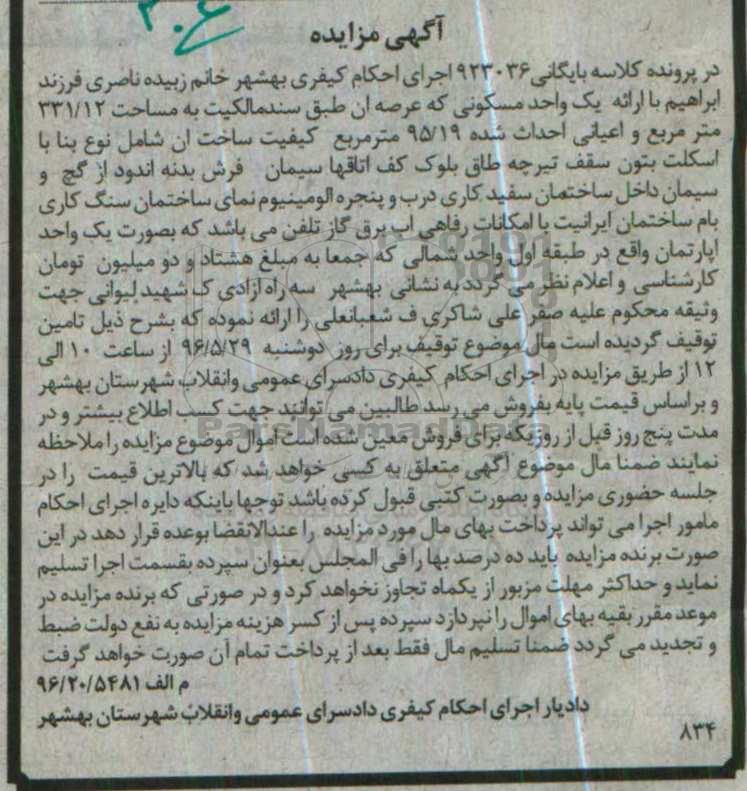 ۳۰۶
آگهی مزایده
در پرونده کلاسه بایگانی ۹۲۳۰۳۶ اجرای احکام کیفری بهشهر خانم زبیده ناصری فرزند
ابراهیم با ارائه یک واحد مسکونی که عرصه ان طبق سندمالکیت به مساحت ۳۳۱/۱۲
متر مربع و اعیانی احداث شده ۹۵/۱۹ مترمربع کیفیت ساخت ان شامل نوع بنا با
اسکلت بتون سقف تیرچه طاق بلوک کف اتاقها سیمان فرش بدنه اندود از گچ و
سیمان داخل ساختمان سفید کاری درب و پنجره الومینیوم نمای ساختمان سنگ کاری
بام ساختمان ایرانیت با امکانات رفاهی اب برق گاز تلفن می باشد که بصورت یک واحد
اپارتمان واقع در طبقه اول واحد شمالی که جمعا به مبلغ هشتاد و دو میلیون تومان
کارشناسی و اعلام نظر می گردد به نشانی بهشهر سه راه ازادی ک شهید لیوانی جهت
وثیقه محکوم علیه صفر علی شاکری ف شعبانعلی را ارائه نموده که بشرح ذیل تامین
توقیف گردیده است مال موضوع توقیف برای روز دوشنبه ۹۶/۵/۲۹ از ساعت ۱۰ الی
۱۲ از طریق مزایده در اجرای احکام کیفری دادسرای عمومی وانقلاب شهرستان بهشهر
و براساس قیمت پایه بفروش می رسد طالبین می توانند جهت کسب اطلاع بیشتر و در
مدت پنج روز قبل از روزیکه برای فروش معین شده است اموال موضوع مزایده را ملاحظه
نمایند ضمنا مال موضوع آگهی متعلق به کسی خواهد شد که بالاترین قیمت را در
جلسه حضوری مزایده و بصورت کتبی قبول کرده باشد توجها باینکه دایره اجرای احکام
مامور اجرا می تواند پرداخت بهای مال مورد مزایده را عندالانقضا بوعده قرار دهد در این
صورت برنده مزایده باید ده درصد بها را فی المجلس بعنوان سپرده بقسمت اجرا تسلیم
نماید و حداکثر مهلت مزبور از یکماه تجاوز نخواهد کرد و در صورتی که برنده مزایده در
موعد مقرر بقیه بهای اموال را نپردازد سپرده پس از کسر هزینه مزایده به نفع دولت ضبط
و تجدید می گردد ضمنا تسلیم مال فقط بعد از پرداخت تمام آن صورت خواهد گرفت
م الف ۹۶/۲۰/۵۴۸۱
دادیار اجرای احکام کیفری دادسرای عمومی وانقلاب شهرستان بهشهر
۸۳۴
ParsNamadData